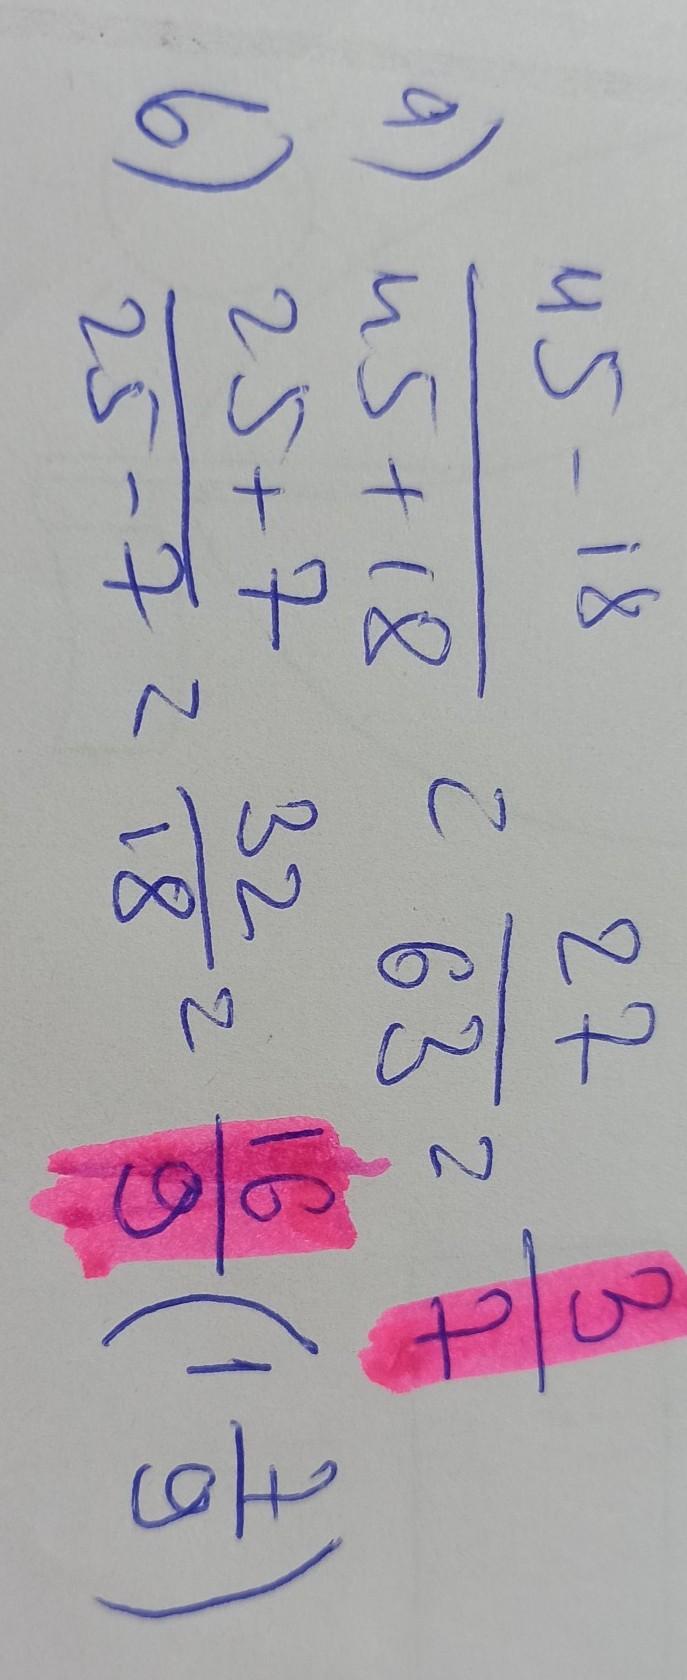 a) 45 - 18 / 45 + 18 = 27 / 63 = 3 / 7
b) 25 + 7 / 25 - 7 = 32 / 18 = 16 / 9 (1 7 / 9)